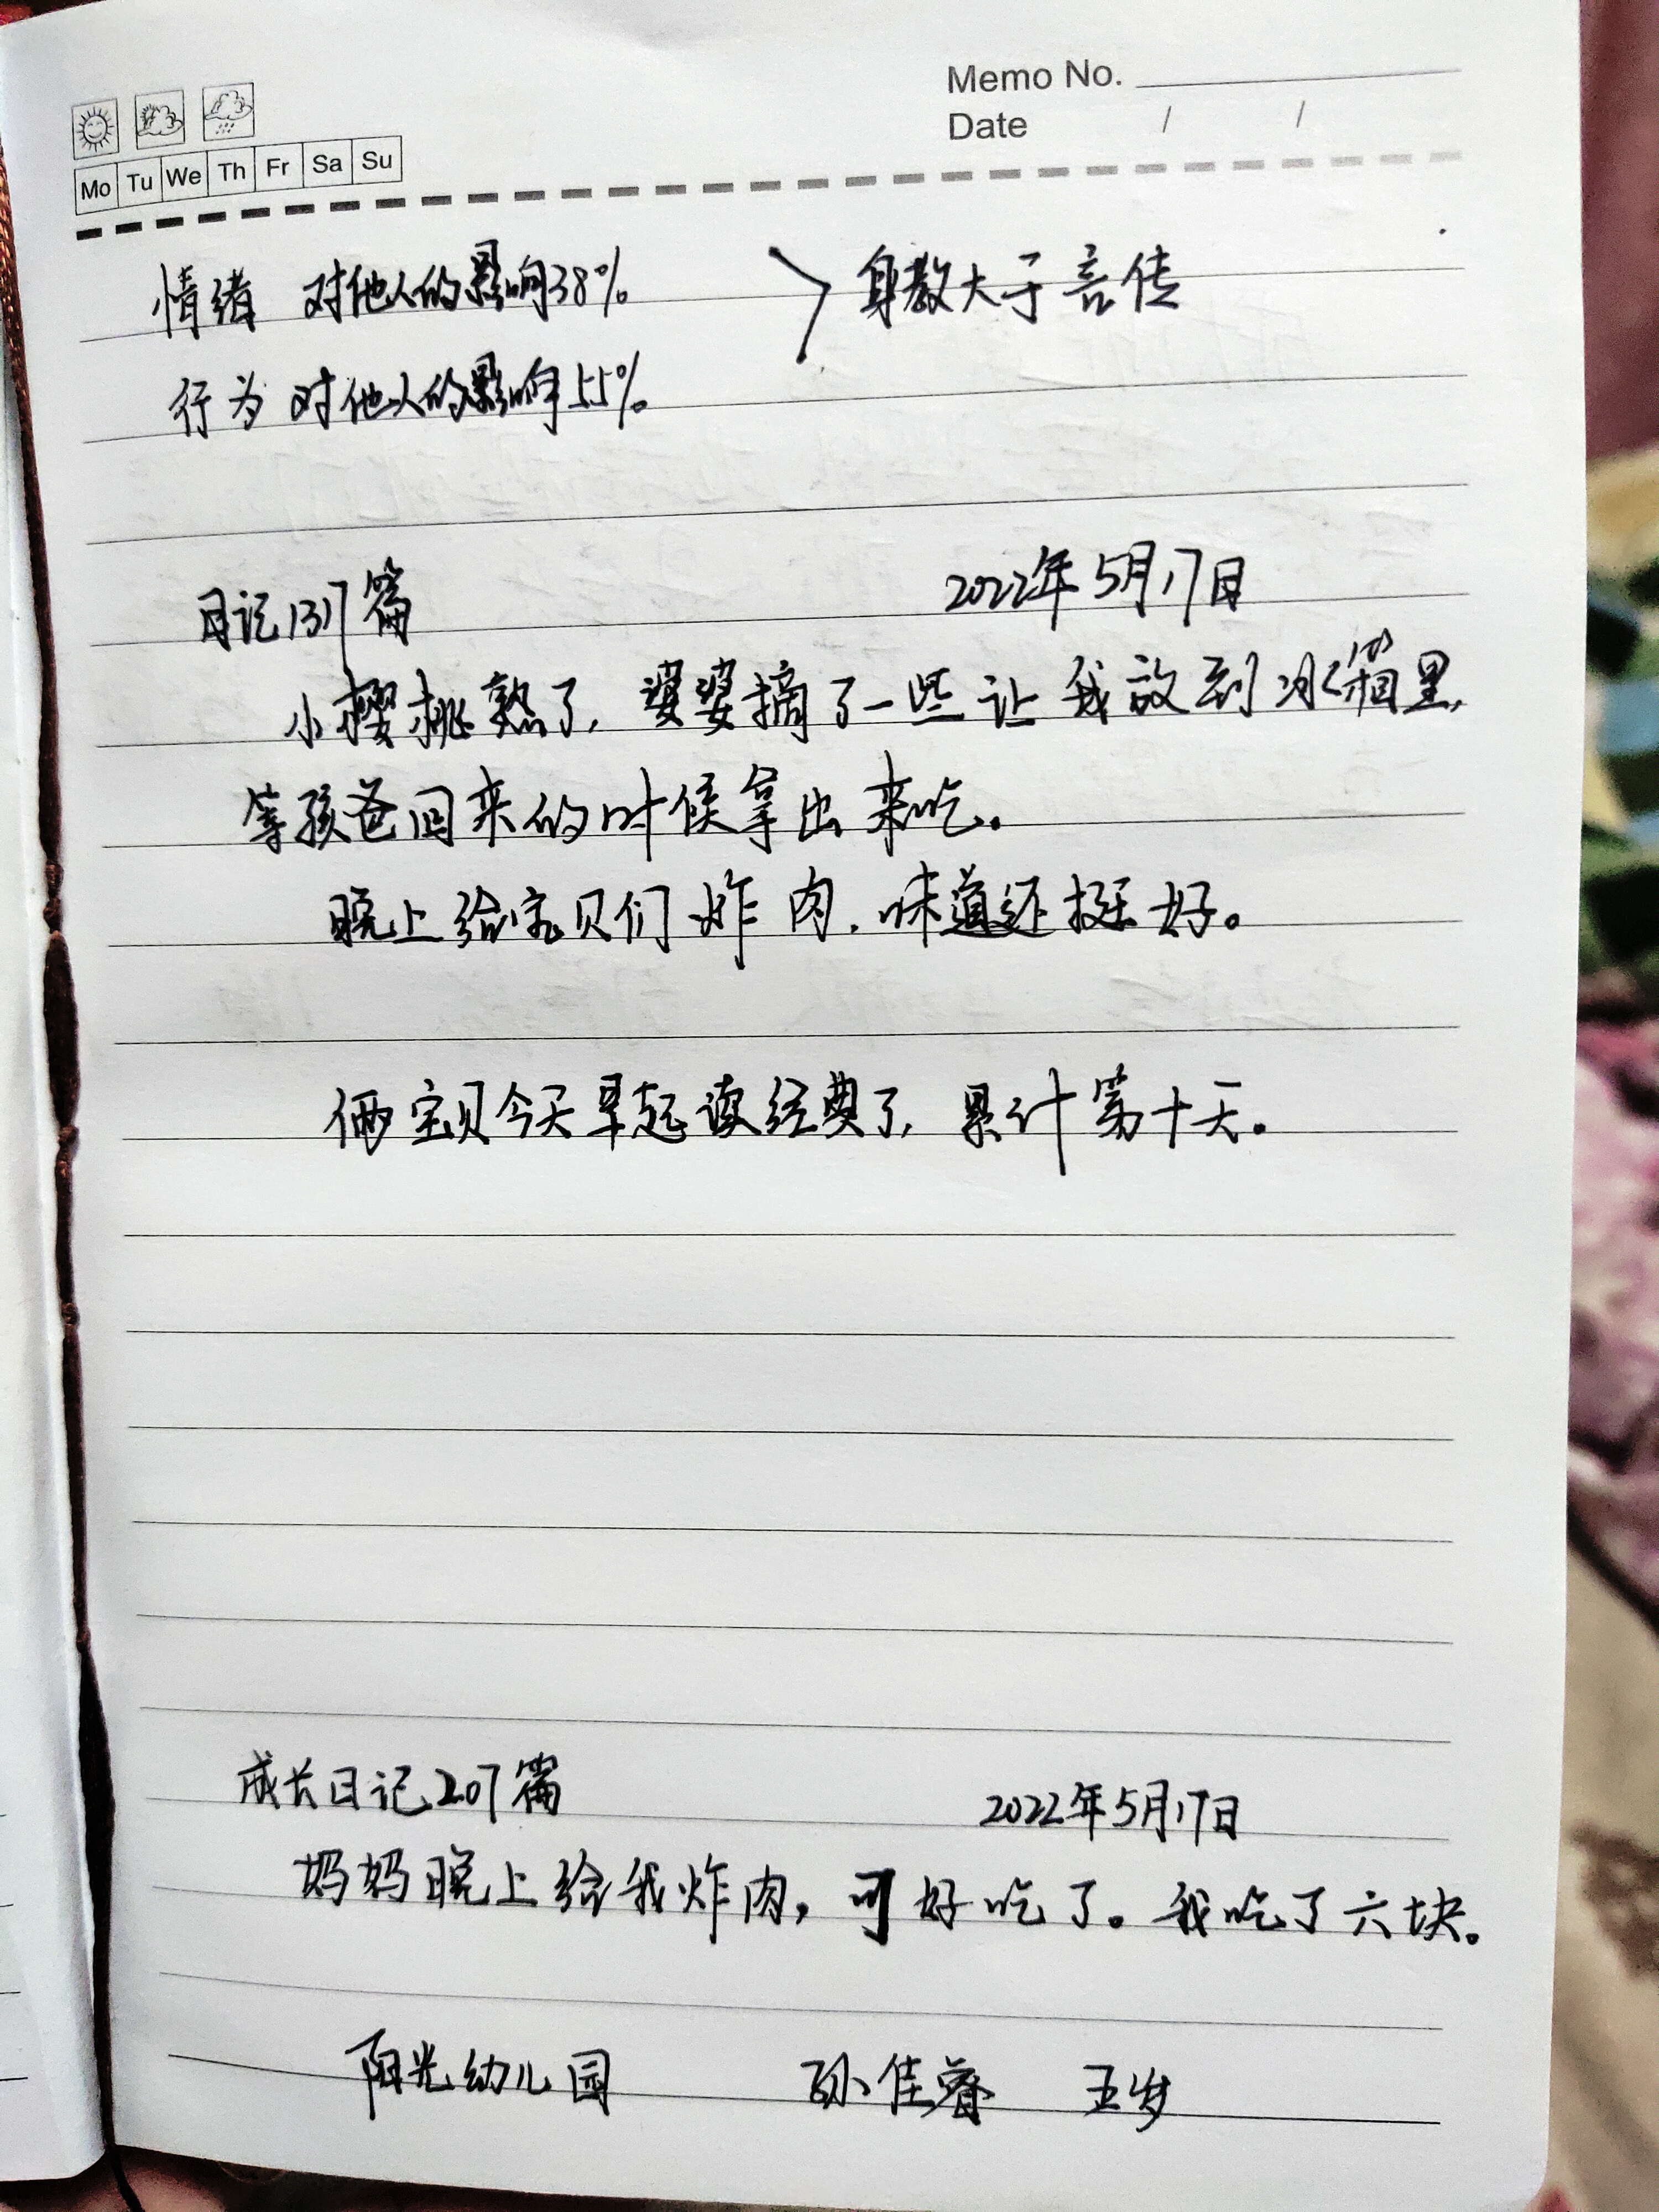 Memo No.
Date / /
Mo Tu We Th Fr Sa Su
情绪 对他人的影响38% > 身教大于言传
行为 对他人的影响55%
日记1317篇 2022年5月17日
小樱桃熟了,婆婆摘了一些让我放到冰箱里,
等孩爸回来的时候拿出来吃。
晚上给宝贝们炸肉,味道还挺好。
俩宝贝今天早起读经典了,累计第十天。
成长日记207篇 2022年5月17日
妈妈晚上给我炸肉,可好吃了。我吃了六块。
阳光幼儿园 孙佳睿 五岁